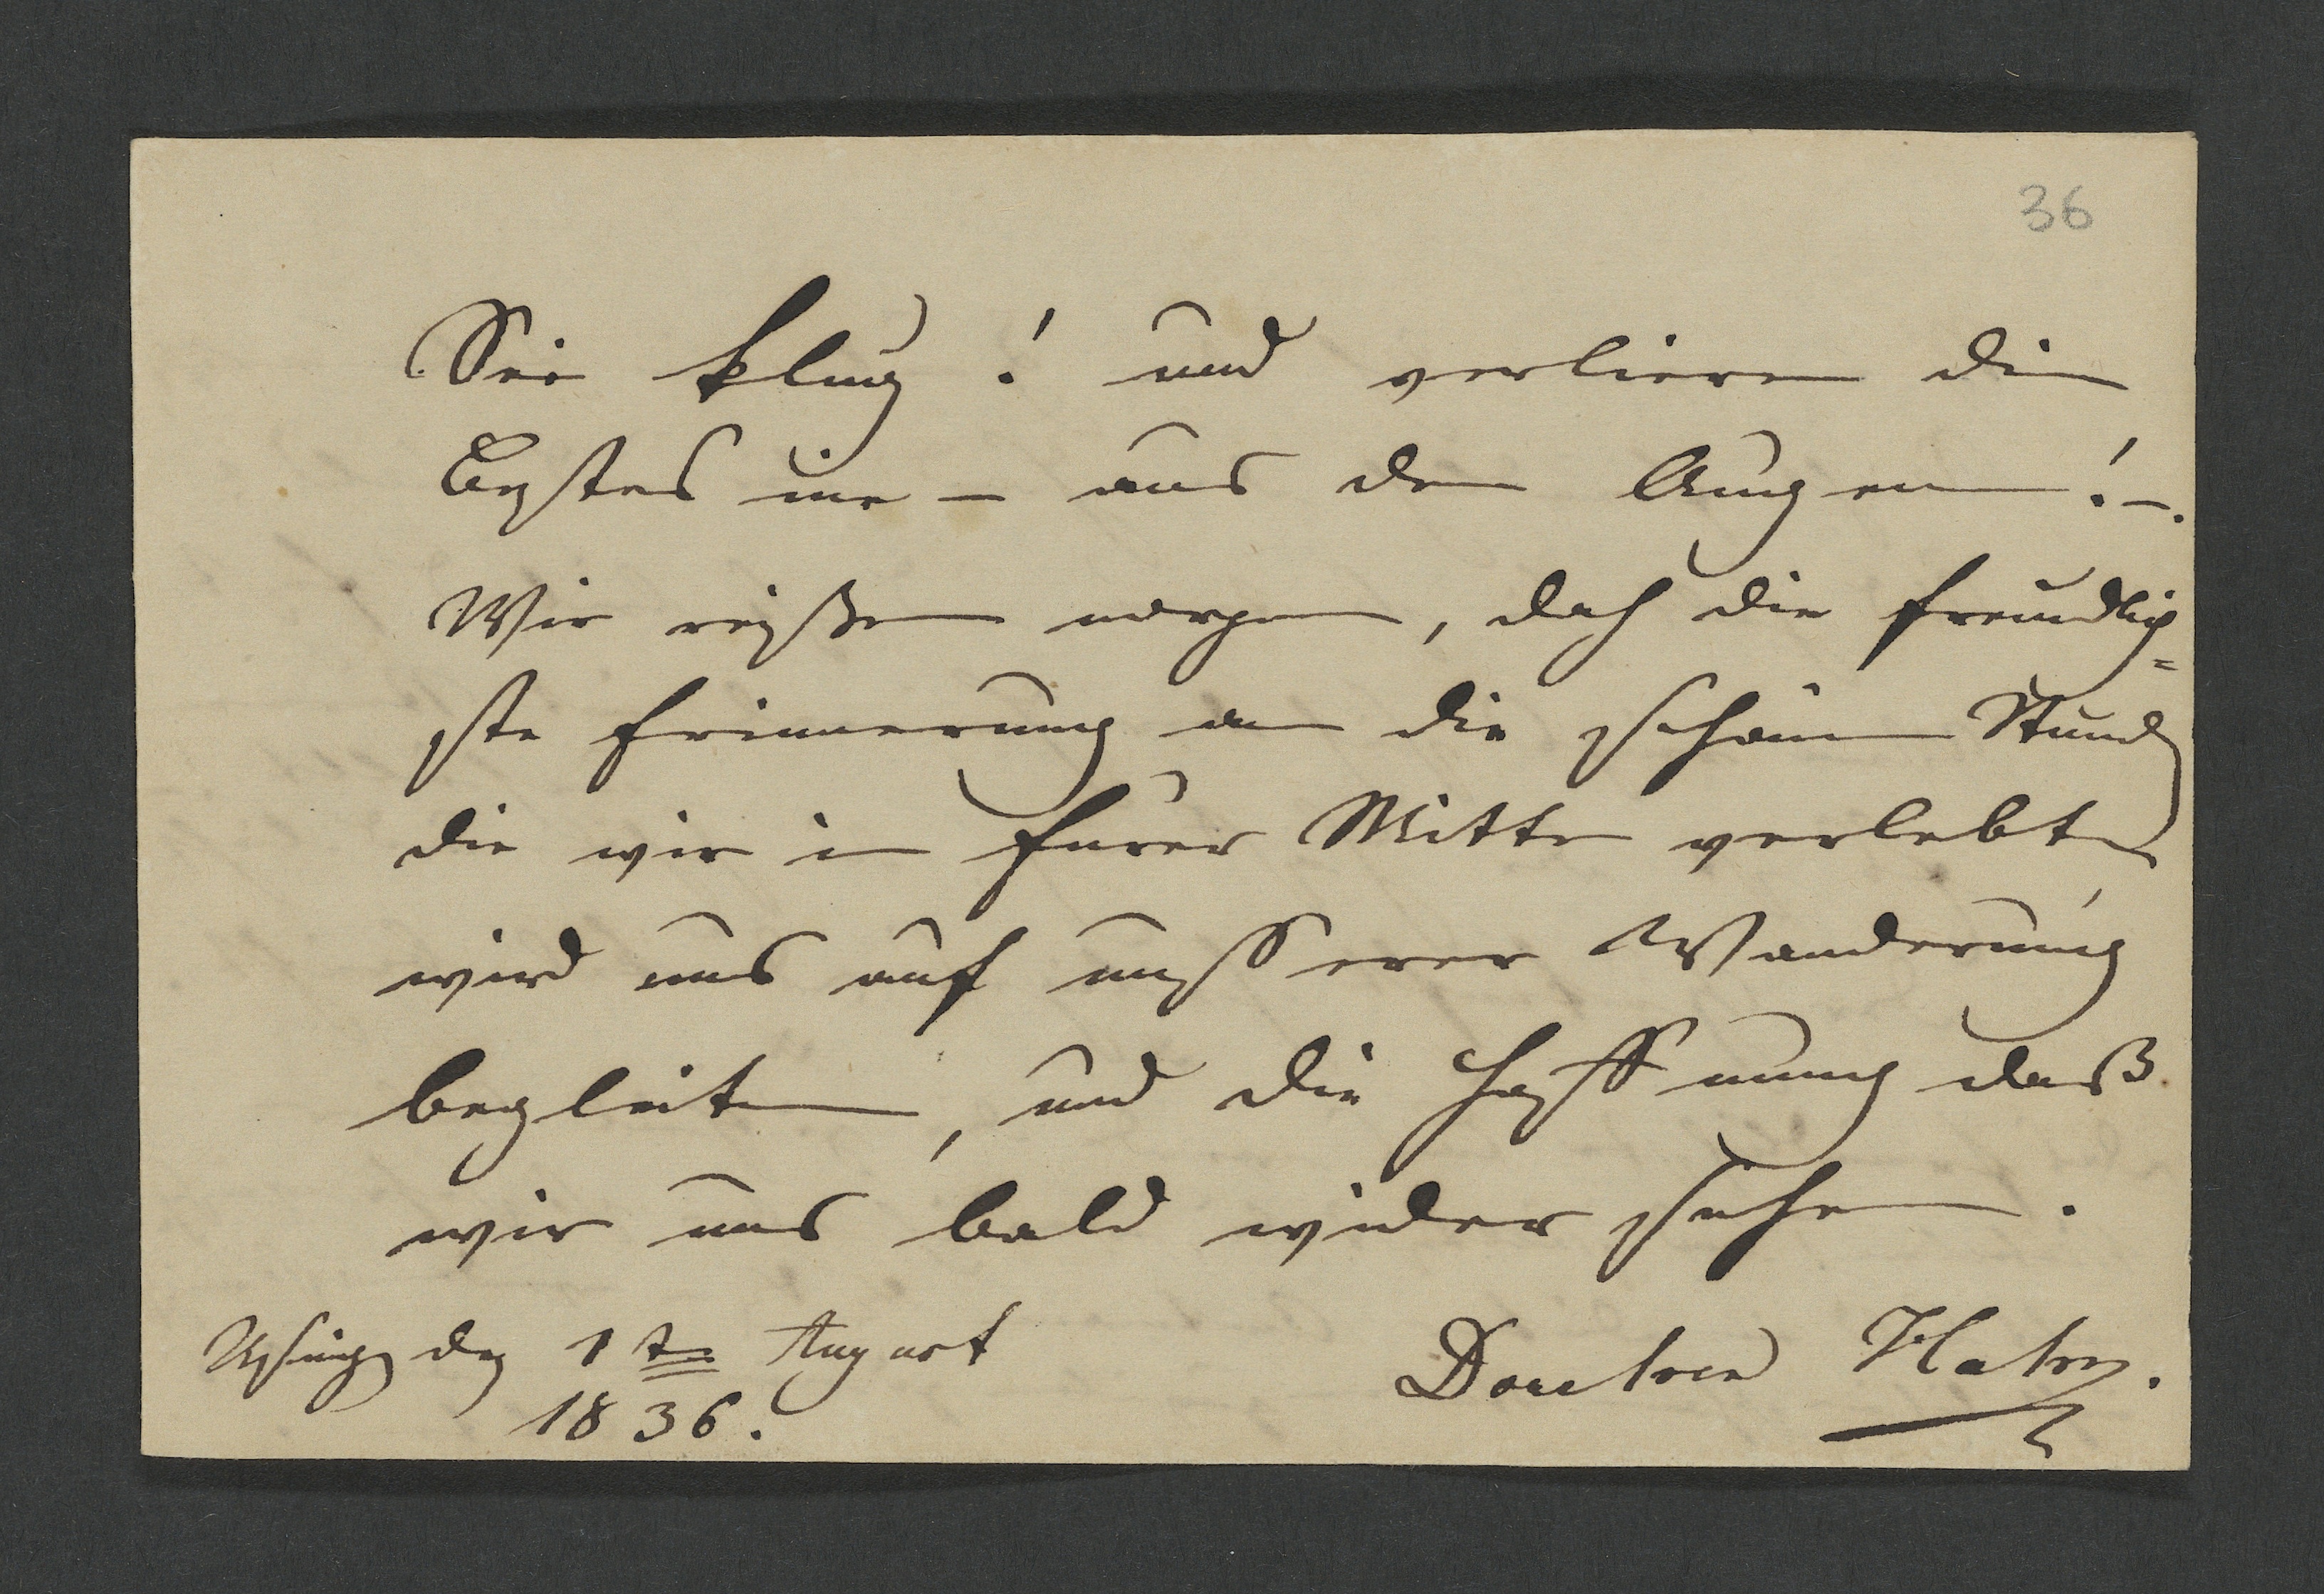 36
Sei klug! und verliere dein
Bestes nie – aus den Augen! –.
Wir reißen morgen, doch die freundlich=
ste Erinnerung an die schönen Stunden
die wir in Eurer Mitte verlebten
wird uns auf unsserer Wanderung
begleiten, und die Hoffnung daß
wir uns bald wider sehen.
den 1ten August
1836.
Hahn.